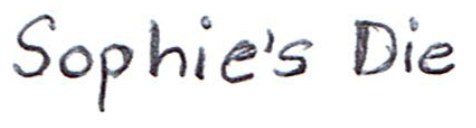 Sophie's Die